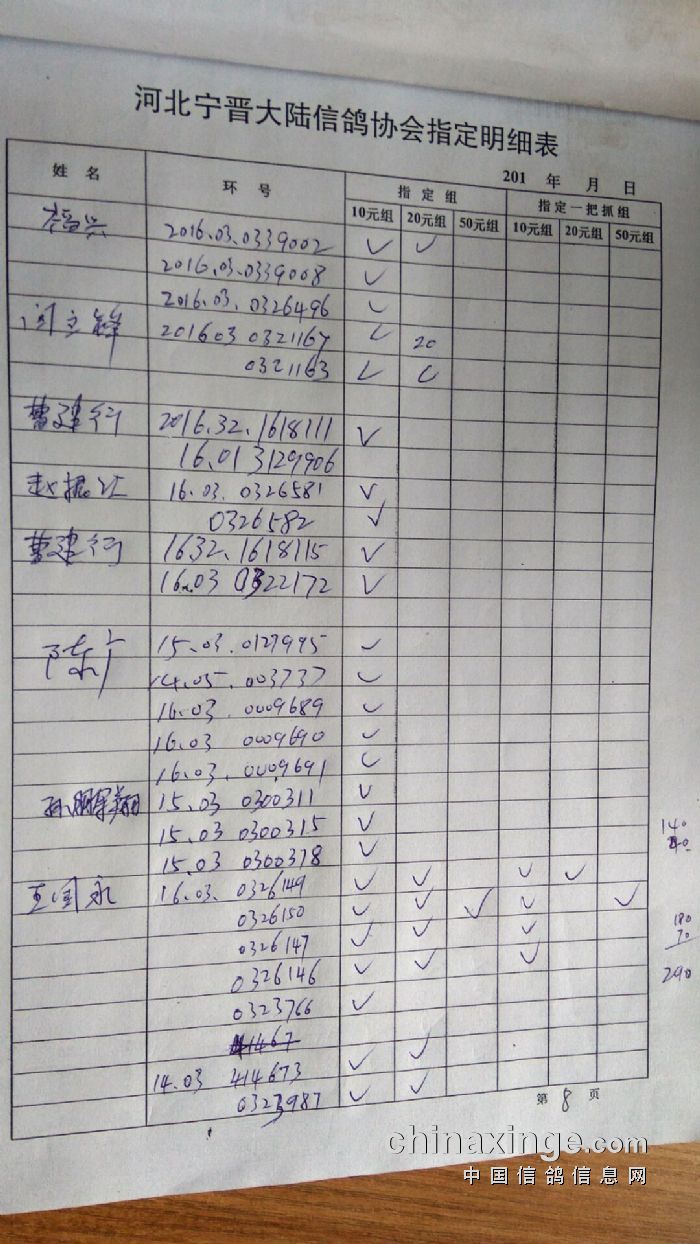 河北宁晋大陆信鸽协会指定明细表
201 年 月 日
姓 名 环 号 指 定 组 指定一把抓组
10元组 20元组 50元组 10元组 20元组 50元组
2016.03.0339002 ✓ ✓
2016.03.0339008 ✓
2016.03.0326496 ✓
闫立锋 201603 0321167 ✓ 20
0321163 ✓ ✓
曹建行 2016.32.1618111 ✓
16.01 3129906
赵振江 16.03.0326581 ✓
0326582 ✓
曹建行 1632.1618115 ✓
16.03 0322172 ✓
陈广 15.03.0127995 ✓
14.05.003737 ✓
16.03.0009689 ✓
16.03 0009690 ✓
16.03.0009691 ✓
孙鹏军翔 15.03 0300311 ✓
15.03 0300315 ✓
15.03 0300318 ✓
王国永 16.03.0326149 ✓ ✓ ✓ ✓
0326150 ✓ ✓ ✓ ✓ ✓
0326147 ✓ ✓ ✓
0326146 ✓ ✓ ✓
0323766 ✓
14.03 414673 ✓ ✓
0323987 ✓ ✓
140
180
70
290
第 8 页
chinaxinge.com
中国信鸽信息网